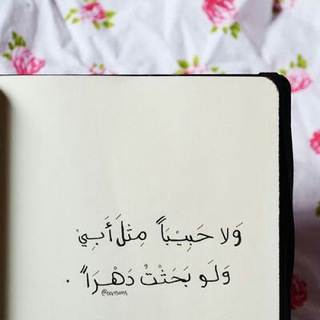 وَلا حَبِيْبَاً مِثلَ أَبِيْ
وَلَو بَحَثْتُ دَهْرَاً .